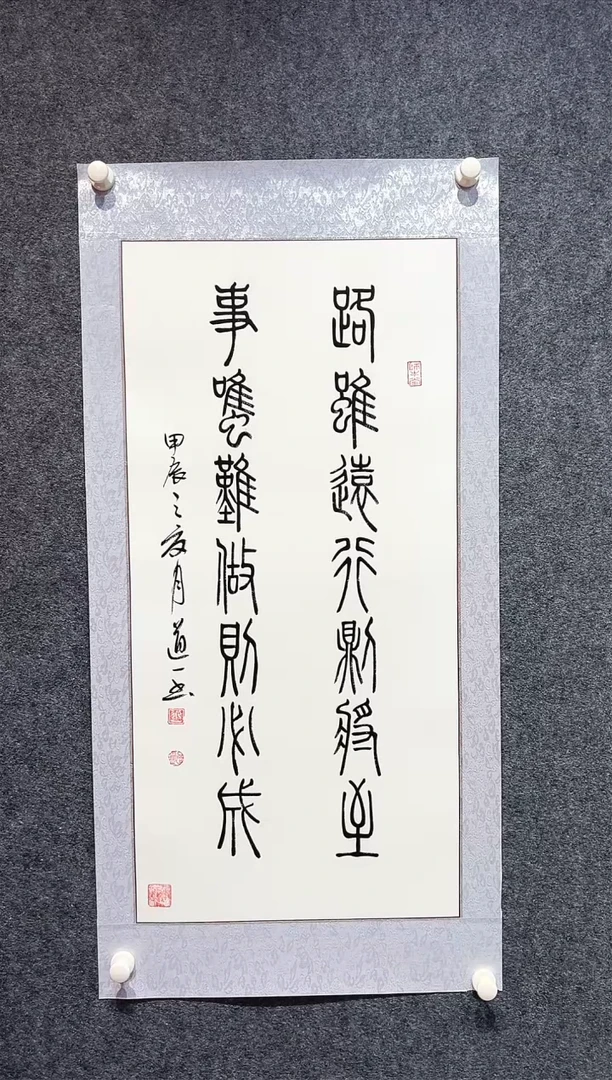 路雖遠行則將至
事雖難做則必成
甲辰之夏月道一书